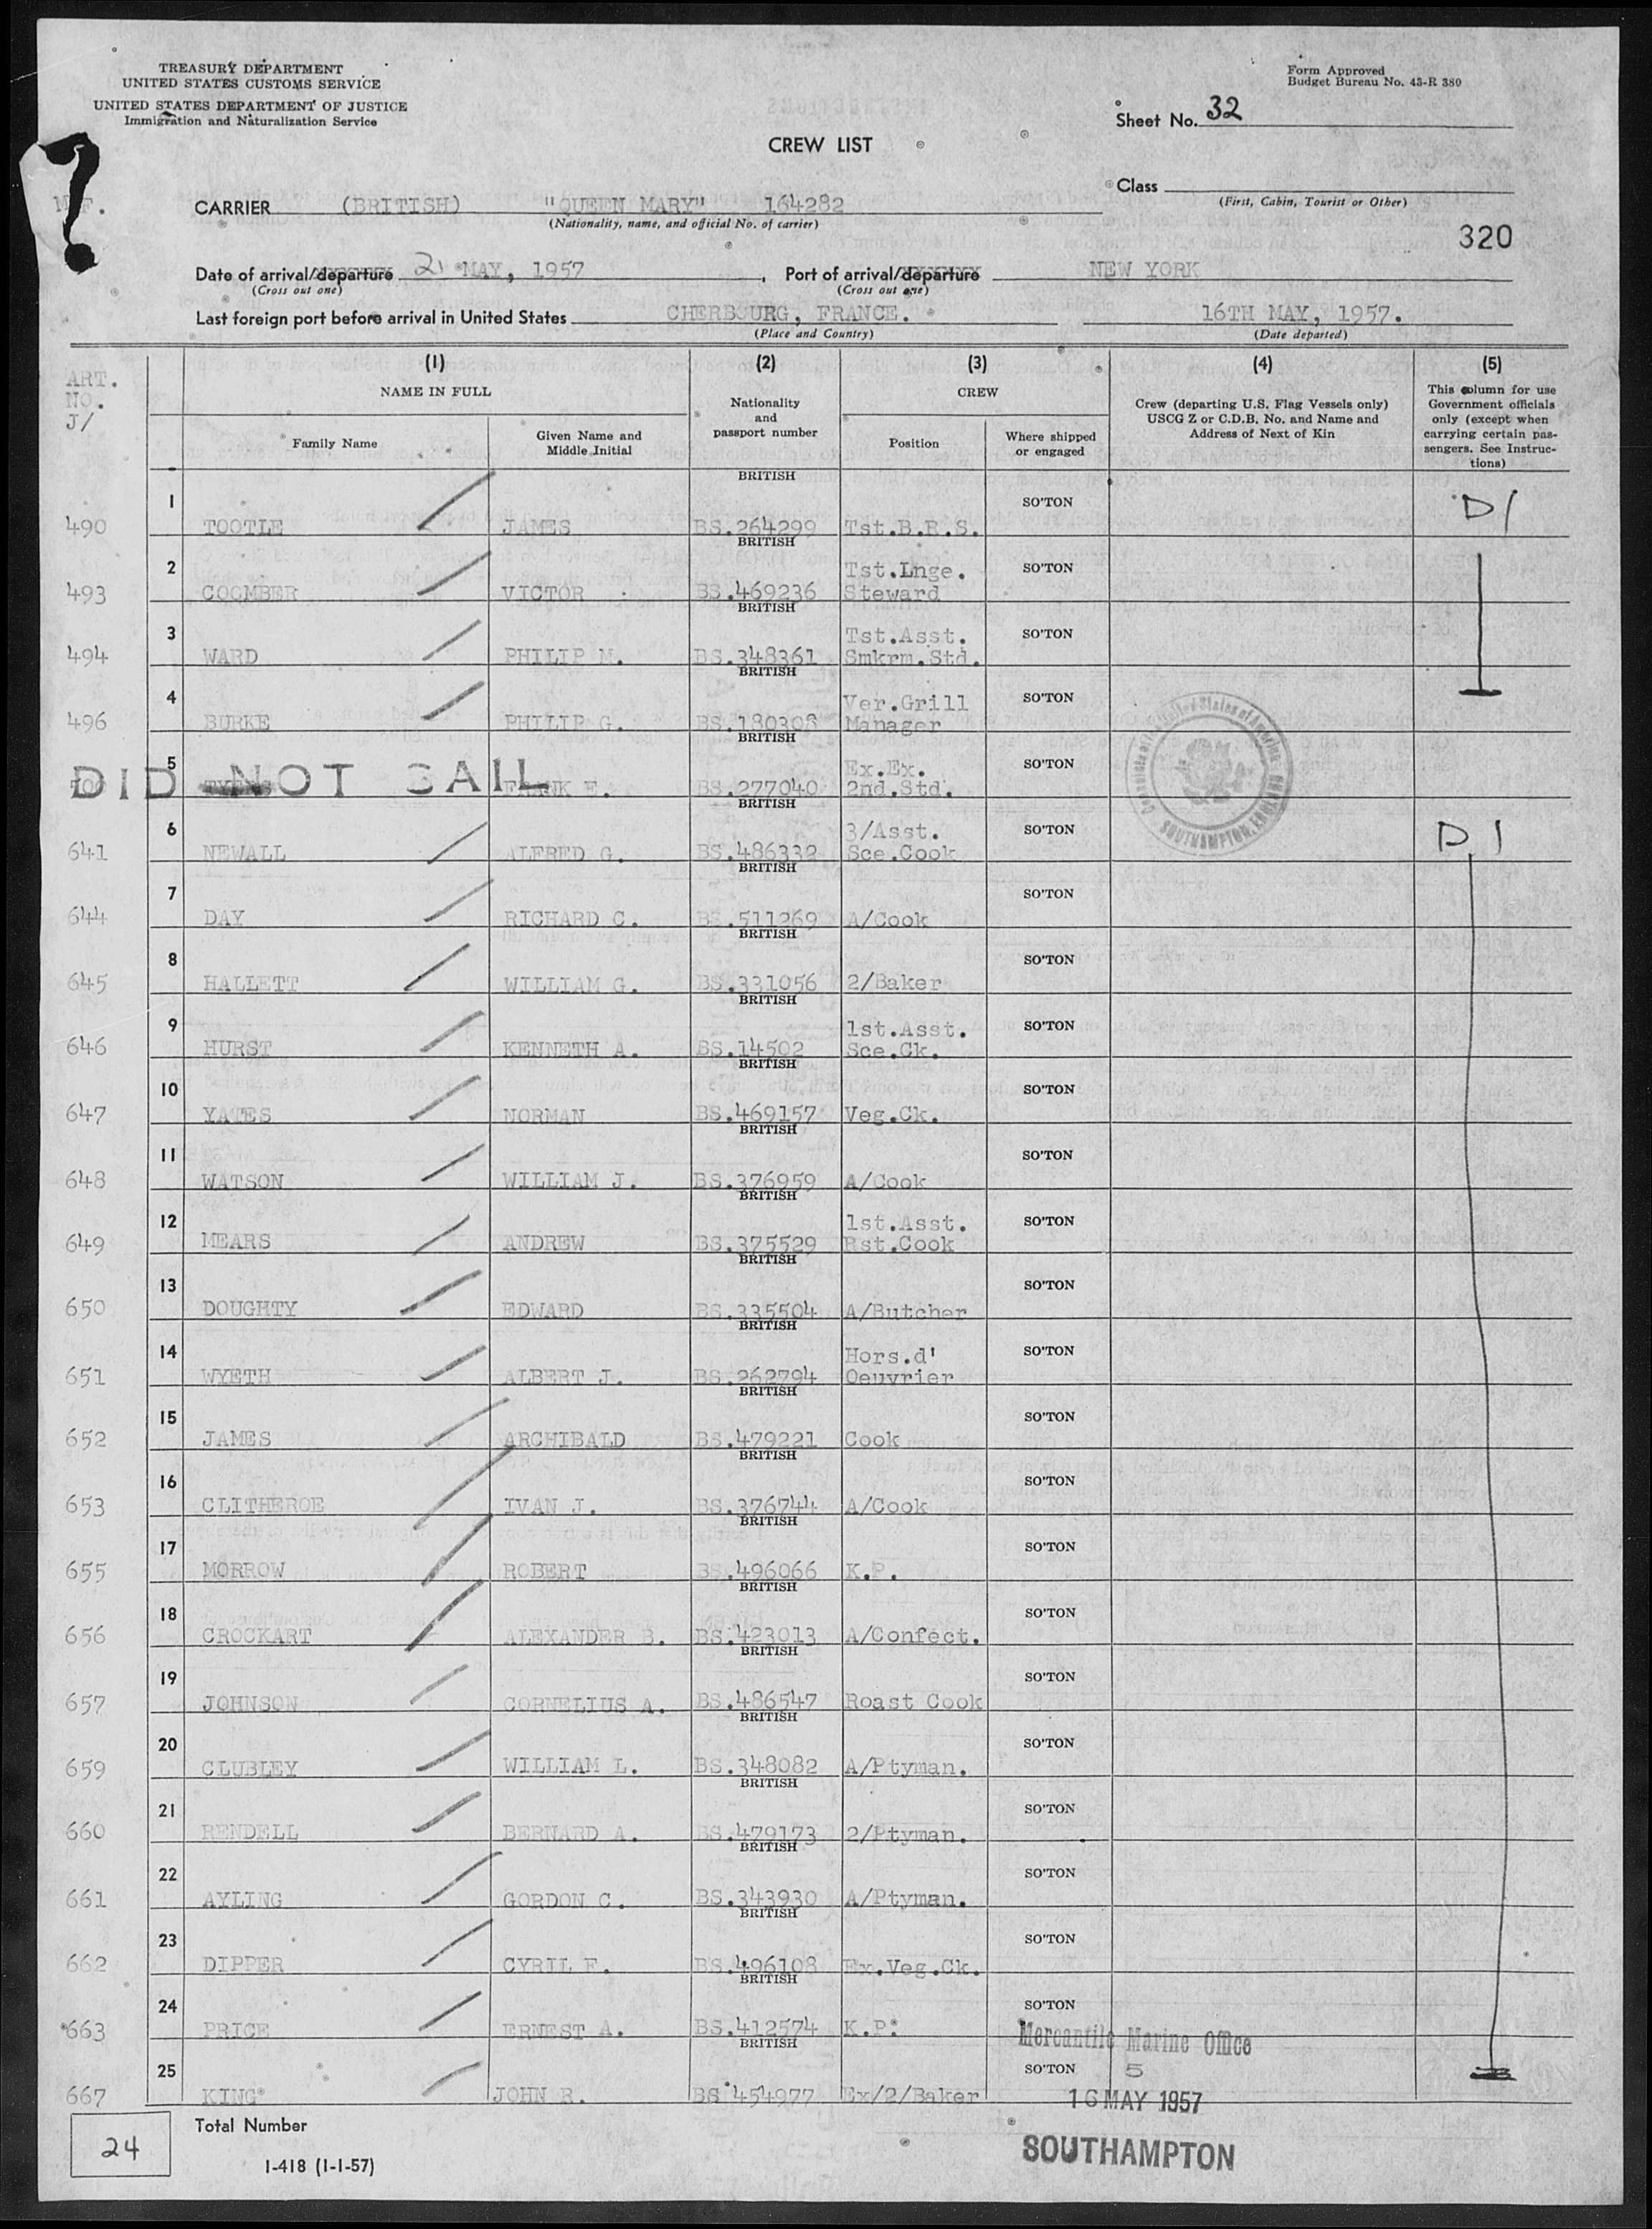 TREASURY DEPARTMENT
UNITED STATES CUSTOMS SERVICE
UNITED STATES DEPARTMENT OF JUSTICE
Immigration and Naturalization Service
Form Approved
Budget Bureau No. 43-R 380
Sheet No. 32
CREW LIST
Class
(First, Cabin, Tourist or Other)
?
CARRIER (BRITISH) "QUEEN MARY" 164282
(Nationality, name, and official No. of carrier)
320
Date of arrival/departure 21 MAY, 1957, Port of arrival/departure NEW YORK
(Cross out one) (Cross out one)
Last foreign port before arrival in United States CHERBOURG, FRANCE. 16TH MAY, 1957.
(Place and Country) (Date departed)
ART. NO. J/
(1) NAME IN FULL
Family Name
Given Name and Middle Initial
(2) Nationality and passport number
(3) CREW
Position
Where shipped or engaged
(4) Crew (departing U.S. Flag Vessels only) USCG Z or C.D.B. No. and Name and Address of Next of Kin
(5) This column for use Government officials only (except when carrying certain passengers. See Instructions)
490 1 TOOTLE JAMES BRITISH BS.264299 Tst.B.R.S. SO'TON D1
493 2 COOMBER VICTOR BRITISH BS.469236 Tst.Lnge. Steward SO'TON
494 3 WARD PHILIP M. BRITISH BS.348361 Tst.Asst. Smkrm.Std. SO'TON
496 4 BURKE PHILIP G. BRITISH BS.180308 Ver.Grill Manager SO'TON
5 FRANK E. BRITISH BS.277040 Ex.Ex. 2nd.Std. SO'TON
DID NOT SAIL
SOUTHAMPTON, ENGLAND
641 6 NEWALL ALFRED G. BRITISH BS.486332 3/Asst. Sce.Cook SO'TON D1
644 7 DAY RICHARD C. BRITISH BS.511269 A/Cook SO'TON
645 8 HALLETT WILLIAM G. BRITISH BS.331056 2/Baker SO'TON
646 9 HURST KENNETH A. BRITISH BS.14502 1st.Asst. Sce.Ck. SO'TON
647 10 YATES NORMAN BRITISH BS.469157 Veg.Ck. SO'TON
648 11 WATSON WILLIAM J. BRITISH BS.376959 A/Cook SO'TON
649 12 MEARS ANDREW BRITISH BS.375529 1st.Asst. Rst.Cook SO'TON
650 13 DOUGHTY EDWARD BRITISH BS.335504 A/Butcher SO'TON
651 14 WYETH ALBERT J. BRITISH BS.262794 Hors.d' Oeuvrier SO'TON
652 15 JAMES ARCHIBALD BRITISH BS.479221 Cook SO'TON
653 16 CLITHEROE IVAN J. BRITISH BS.376744 A/Cook SO'TON
655 17 MORROW ROBERT BRITISH BS.496066 K.P. SO'TON
656 18 CROCKART ALEXANDER B. BRITISH BS.423013 A/Confect. SO'TON
657 19 JOHNSON CORNELIUS A. BRITISH BS.486547 Roast Cook SO'TON
659 20 CLUBLEY WILLIAM L. BRITISH BS.348082 A/Ptyman. SO'TON
660 21 RENDELL BERNARD A. BRITISH BS.479173 2/Ptyman. SO'TON
661 22 AYLING GORDON C. BRITISH BS.343930 A/Ptyman. SO'TON
662 23 DIPPER CYRIL F. BRITISH BS.496108 Ex.Veg.Ck. SO'TON
663 24 PRICE ERNEST A. BRITISH BS.412574 K.P. SO'TON
667 25 KING JOHN R. BRITISH BS 454977 Ex/2/Baker SO'TON
Mercantile Marine Office
5
16 MAY 1957
SOUTHAMPTON
24 Total Number
I-418 (1-1-57)